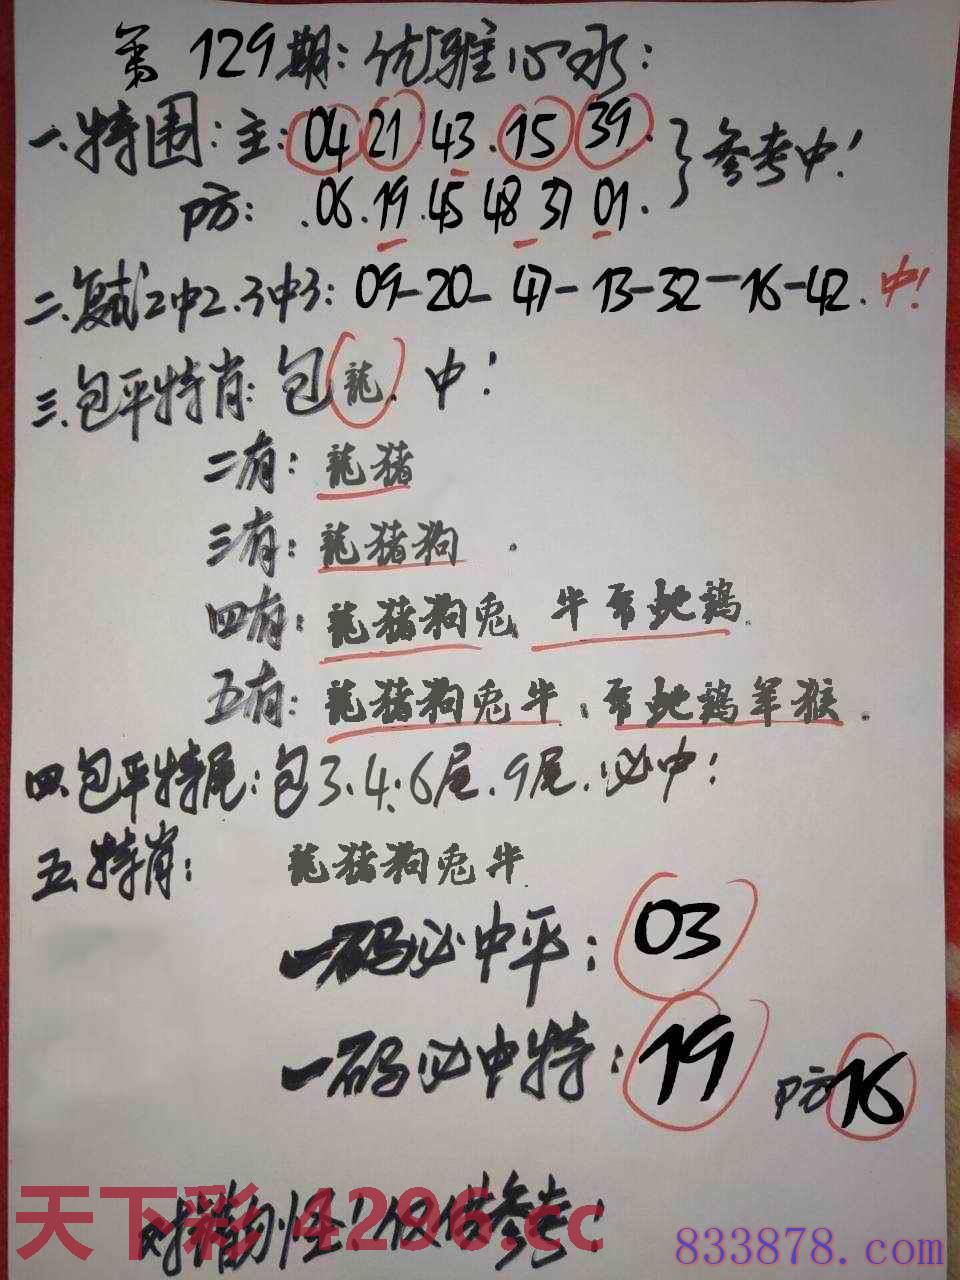 第129期:优雅心水:
一.特围:主:04 21 43.15 39.}参考中!
防:.06.19.45 48 37 01.
二.复试2中2.3中3:09-20-47-13-32-16-42.中!
三.包平特肖:包龍.中!
二有:龍猪
三有:龍猪狗.
四有:龍猪狗兎 牛虎蛇鶏.
五有:龍猪狗兎牛.虎蛇鶏羊猴.
四.包平特尾:包3.4.6尾.9尾.必中!
五.特肖:龍猪狗兎牛.
一码必中平:03
一码必中特:19 防16
怪!仅供参考!
天下彩 4296.cc
833878.com